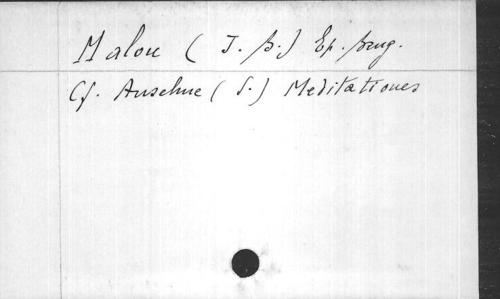 Malou (J. B.) Ep. brug.
Cf. Anselme (S.) Meditationes